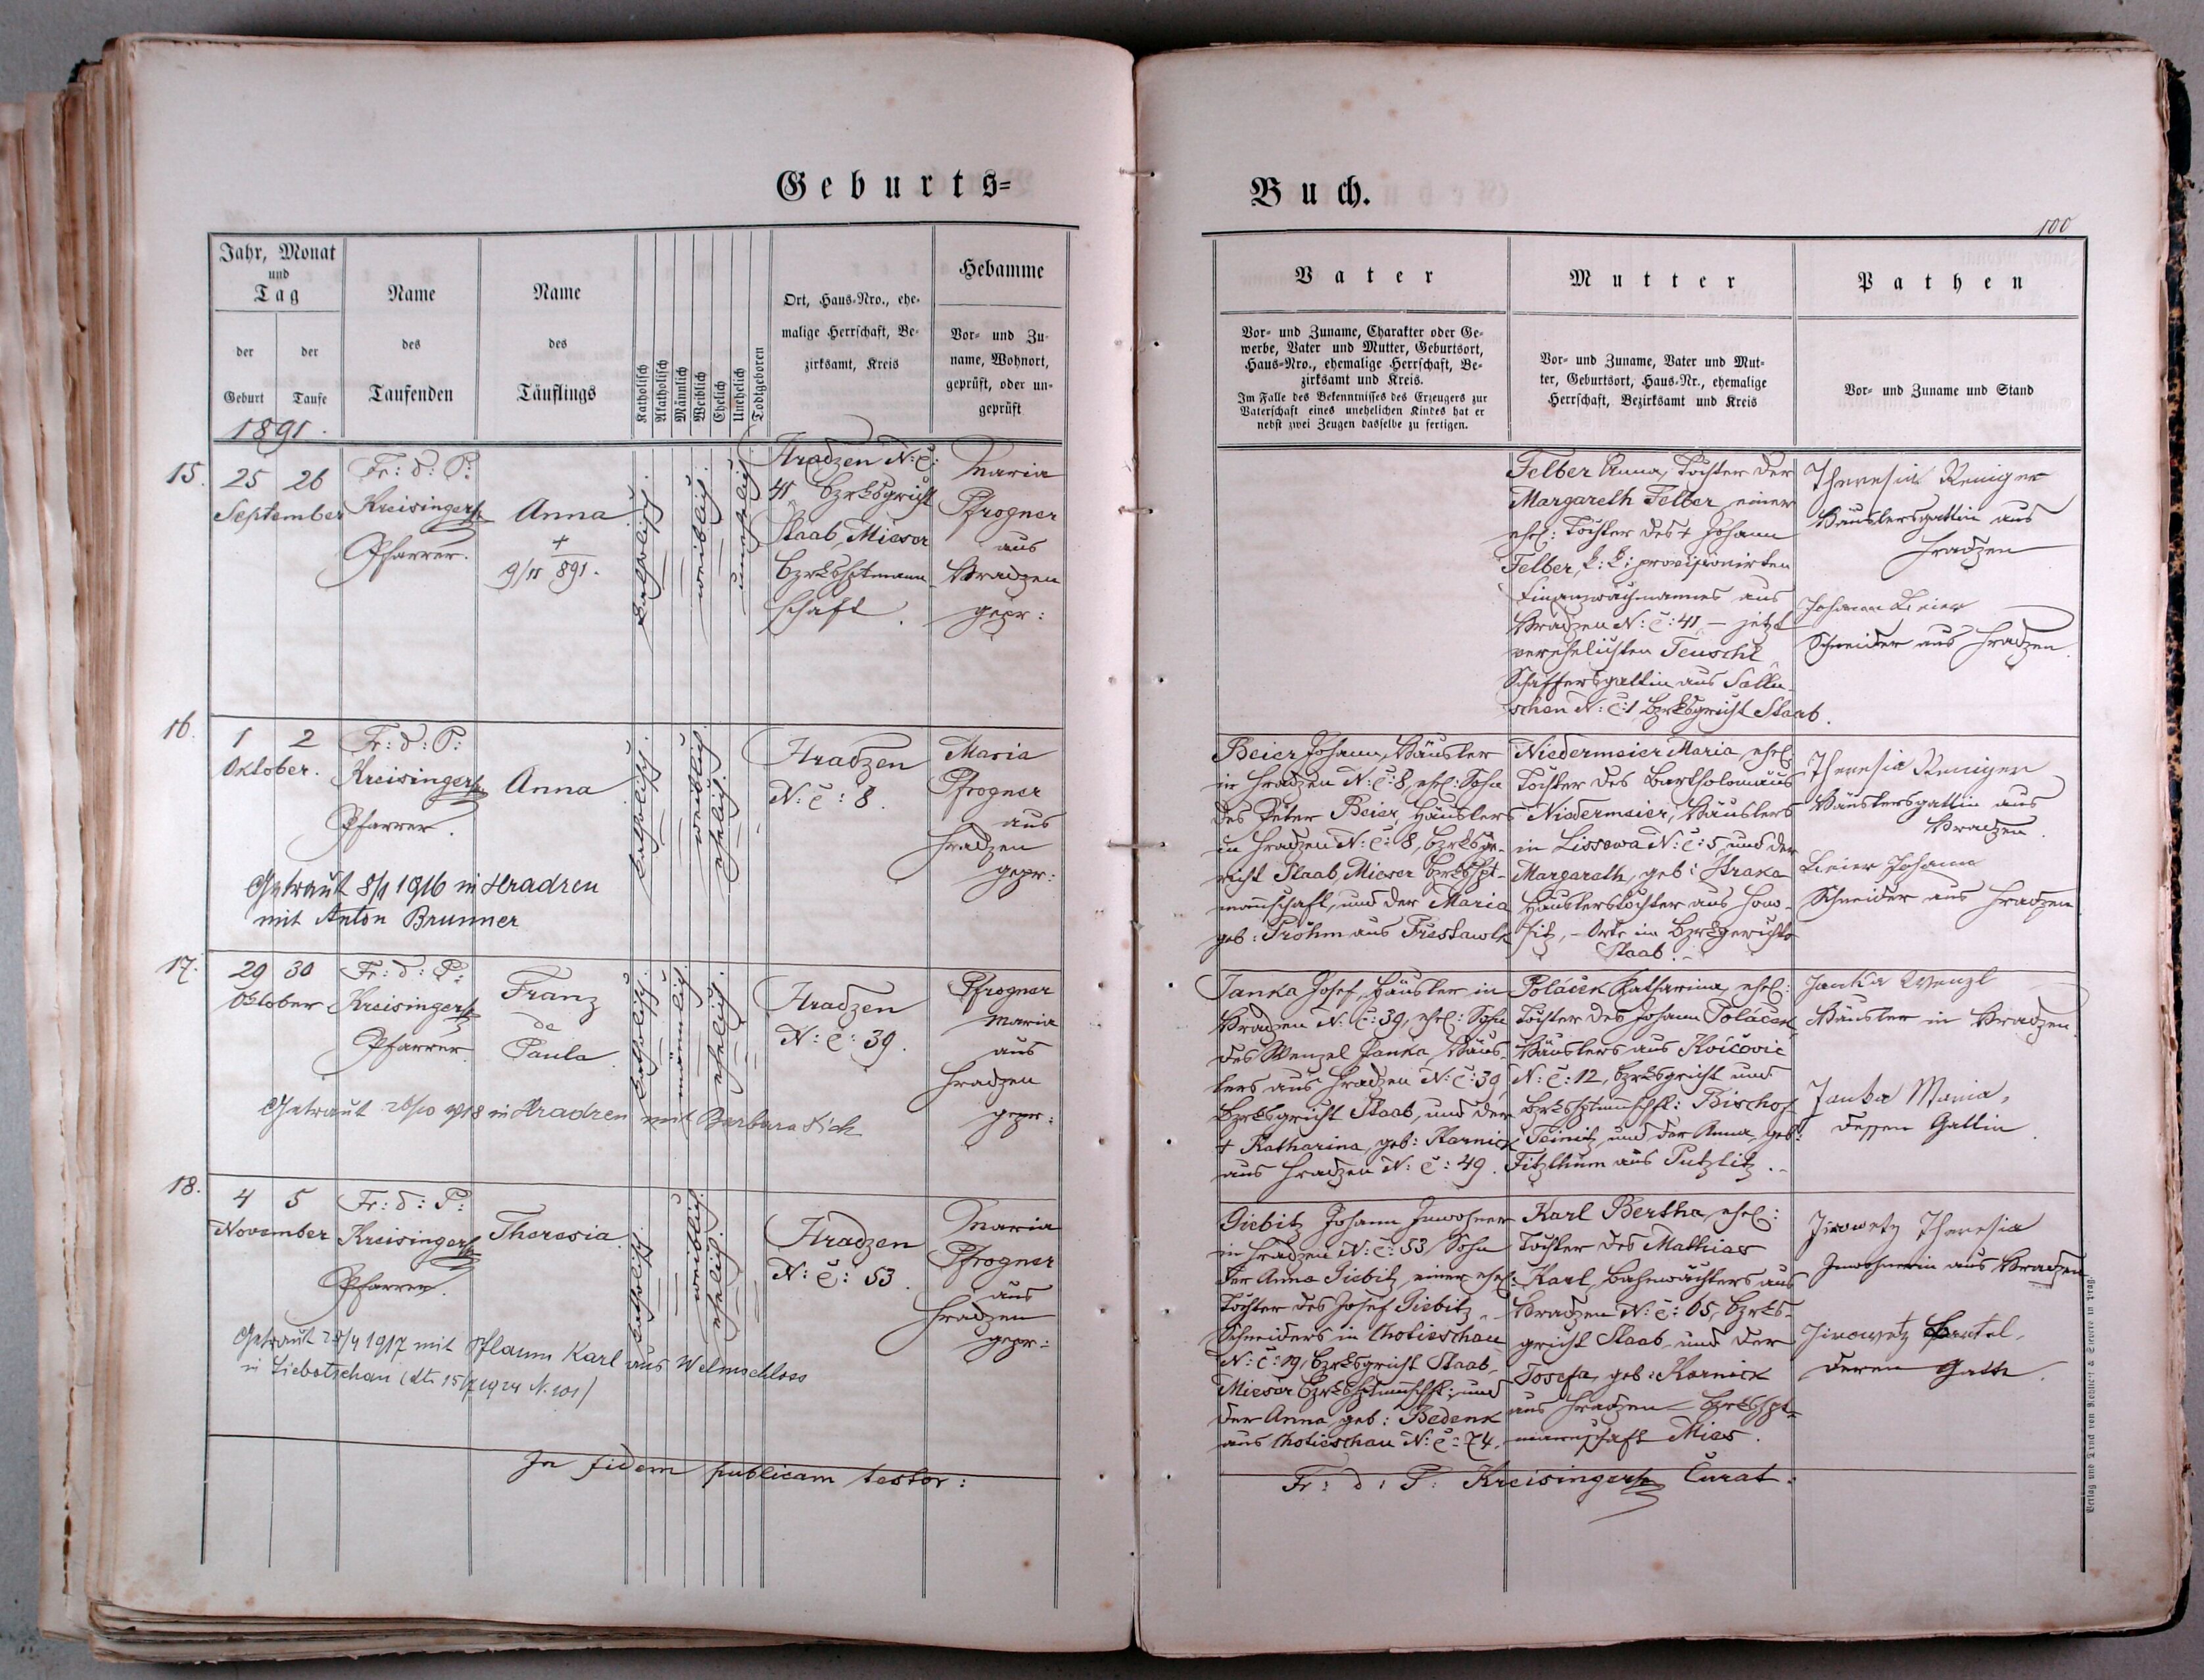 Geburts=
Jahr, Monat
und
Tag
der
Geburt
der
Taufe
Name
des
Taufenden
Name
des
Täuflings
Katholisch
Akatholisch
Männlich
Weiblich
Ehelich
Unehelich
Todtgeboren
Ort, Haus-Nro., ehe-
malige Herrschaft, Be-
zirksamt, Kreis
Hebamme
Vor- und Zu-
name, Wohnort,
geprüft, oder un-
geprüft
1891.
15.
25 26
September
Fr: d: P:
Kreisinger
Pfarrer.
Anna
+
9/11 891.
katholisch
weiblich
unehelich
Hradzen N: č:
41 Bzrksgericht
Staab, Mieser
Bzrkshptmann-
schaft.
Maria
Pfrogner
aus
Hradzen
gepr:
16.
1 2
Oktober.
Fr: d: P:
Kreisinger
Pfarrer.
Anna
katholisch
weiblich
ehelich
Hradzen
N: č: 8.
Maria
Pfrogner
aus
Hradzen
gepr:
Getraut 8/1 1916 in Hradzen
mit Anton Brunner
17.
29 30
Oktober
Fr: d: P:
Kreisinger
Pfarrer
Franz
de
Paula
katholisch
männlich
ehelich
Hradzen
N: č: 39.
Pfrogner
Maria
aus
Hradzen
gepr:
Getraut 26/10 1918 in Hradzen mit Barbara Sich
18.
4 5
November
Fr: d: P:
Kreisinger
Pfarrer.
Theresia
katholisch
weiblich
ehelich
Hradzen
N: č: 53.
Maria
Pfrogner
aus
Hradzen
gepr:
Getraut 28/4 1917 mit Pflaum Karl aus Welmschloss
in Liebotschan (dto 15/7 1924 N. 101)
In fidem publicam testor:
Buch.
100
Vater
Vor- und Zuname, Charakter oder Ge-
werbe, Vater und Mutter, Geburtsort,
Haus-Nro., ehemalige Herrschaft, Be-
zirksamt und Kreis.
Im Falle des Bekenntnisses des Erzeugers zur
Vaterschaft eines unehelichen Kindes hat er
nebst zwei Zeugen dasselbe zu fertigen.
Mutter
Vor- und Zuname, Vater und Mut-
ter, Geburtsort, Haus-Nr., ehemalige
Herrschaft, Bezirksamt und Kreis
Pathen
Vor- und Zuname und Stand
Felber Anna, Tochter der
Margareth Felber, einer
ehel: Tochter des + Johann
Felber, k: k: provisionirten
Finanzwachmannes aus
Hradzen N: č: 41 – jetzt
verehelichten Teuschl
Schaffersgattin aus Sallu-
schen N: č: 1 Bzrksgericht Staab.
Theresia Reniger
Häuslersgattin aus
Hradzen
Johann Beier
Schneider aus Hradzen.
Beier Johann, Häusler
in Hradzen N: č: 8, ehel: Sohn
des Peter Beier, Häuslers
in Hradzen N: č: 8, Bzrksge-
richt Staab, Mieser Bzrkshpt-
mannschaft, und der Maria
geb: Pröhm aus Prestawlk
Niedermeier Maria, ehel:
Tochter des Bartholomäus
Niedermeier, Häuslers
in Lissowa N: č: 5, und der
Margareth, geb: Straka
Häuslerstochter aus Hono-
sitz, – Orte im Bzrksgerichte
Staab.–
Theresia Reniger
Häuslersgattin aus
Hradzen.
Beier Johann
Schneider aus Hradzen
Janka Josef, Häusler in
Hradzen N: č: 39, ehel: Sohn
des Wenzel Janka, Häus-
lers aus Hradzen N: č: 39,
Bzrksgericht Staab, und der
+ Katharina, geb: Karnick
aus Hradzen N: č: 49.
Poláček Katharina, ehel:
Tochter des Johann Poláček,
Häuslers aus Kvíčovic
N: č: 12, Bzrksgericht und
Bzrkshptmschft: Bischof
Teinitz, und der Anna, geb:
Fitzthum aus Putzlitz.–
Janka Wenzl
Häusler in Hradzen.
Janka Maria,
dessen Gattin.
Giebitz Johann Inwohner
in Hradzen N: č: 53 Sohn
der Anna Giebitz, einer ehel:
Tochter des Josef Giebitz,
Schneiders in Chotieschau
N: č: 19, Bzrksgericht Staab,
Mieser Bzrkshptmschft; und
der Anna, geb: Bedenk
aus Chotieschau N: č: 74.
Karl Bertha, ehel:
Tochter des Mathias
Karl, Bahnwächters aus
Hradzen N: č: 65, Bzrks-
gericht Staab, und der
Josefa, geb: Karnick
aus Hradzen – Bzrkshpt-
mannschaft Mies.
Jirowetz Theresia
Inwohnerin aus Hradzen
Jirowetz Bartol.
deren Gatte.
Fr: d: P: Kreisinger Curat.
Verlag und Druck von Rohliček & Sievers in Prag.